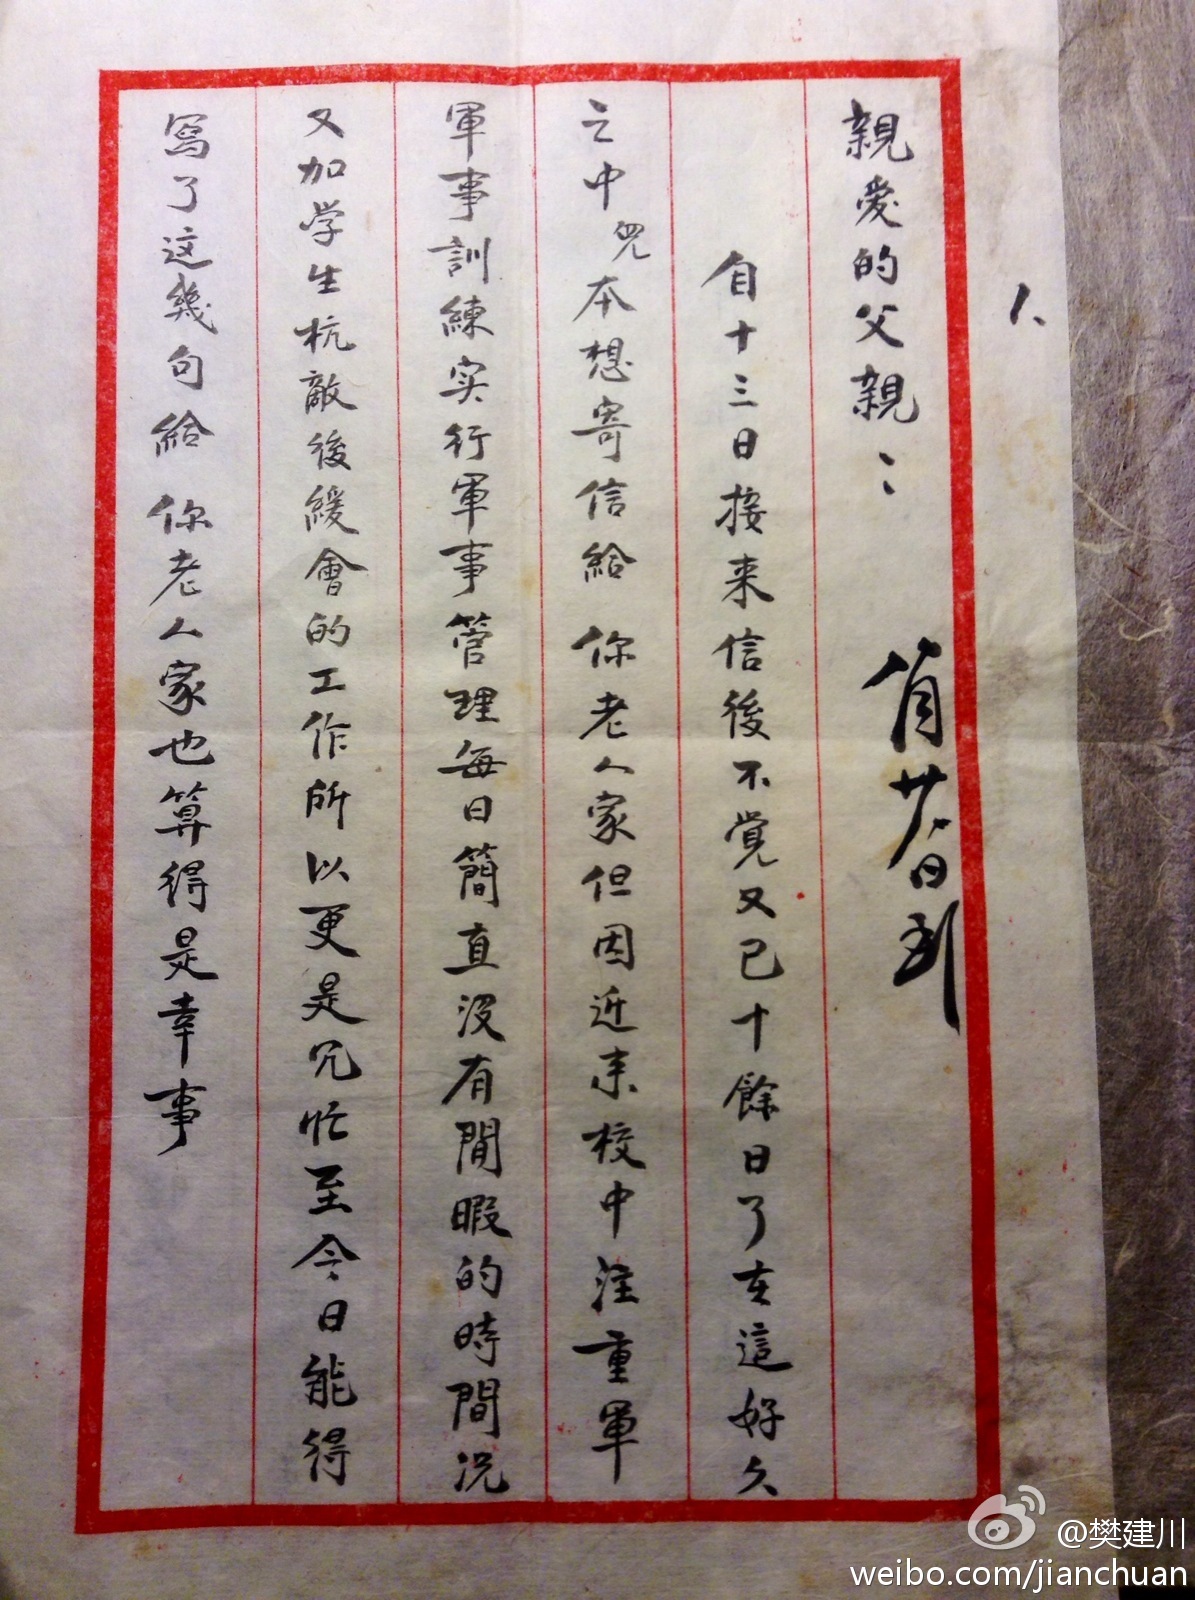 人
親愛的父親：
廿日到
自十三日接来信後不觉又已十餘日了在這好久
之中児本想寄信給 你老人家但因近来校中注重軍
軍事訓練实行軍事管理每日簡直没有閒暇的時間况
又加学生杭敵後緩會的工作所以更是冗忙至今日能得
寫了这幾句給 你老人家也算得是幸事
@樊建川
weibo.com/jianchuan